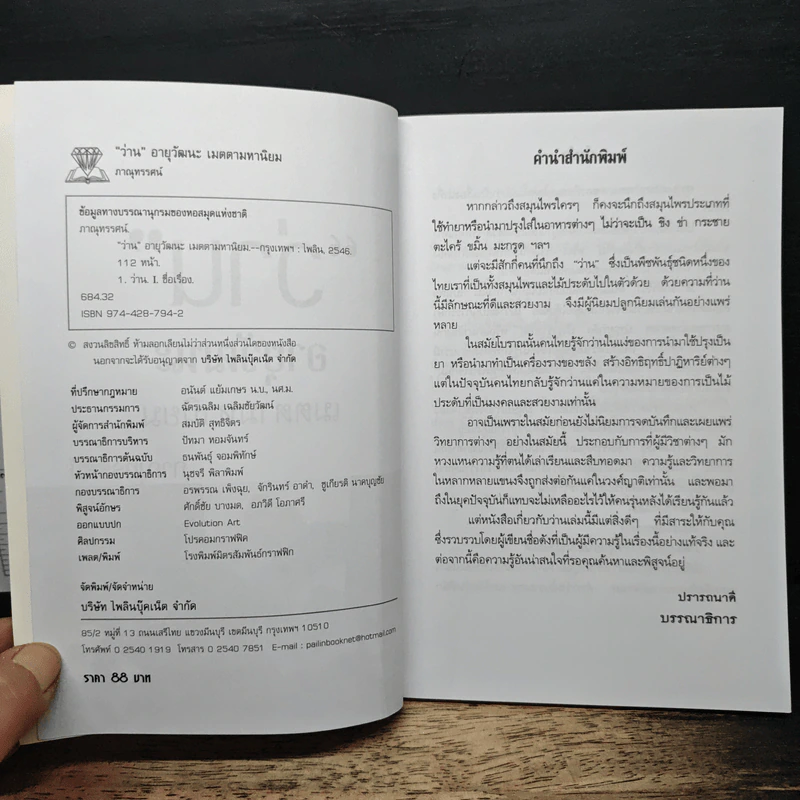 "ว่าน" อายุวัฒนะ เมตตามหานิยม
ภาณุทรรศน์
ข้อมูลทางบรรณานุกรมของหอสมุดแห่งชาติ
ภาณุทรรศน์.
"ว่าน" อายุวัฒนะ เมตตามหานิยม.--กรุงเทพฯ : ไพลิน, 2546.
112 หน้า.
1. ว่าน. I. ชื่อเรื่อง.
684.32
ISBN 974-428-794-2
© สงวนลิขสิทธิ์ ห้ามลอกเลียนไม่ว่าส่วนหนึ่งส่วนใดของหนังสือ
นอกจากจะได้รับอนุญาตจาก บริษัท ไพลินบุ๊คเน็ต จำกัด
ที่ปรึกษากฎหมาย อนันต์ แย้มเกษร น.บ., นศ.ม.
ประธานกรรมการ ฉัตรเฉลิม เฉลิมชัยวัฒน์
ผู้จัดการสำนักพิมพ์ สมบัติ สุทธิจิตร
บรรณาธิการบริหาร ปัทมา หอมจันทร์
บรรณาธิการต้นฉบับ ธนพันธุ์ จอมพิทักษ์
หัวหน้ากองบรรณาธิการ นุชจรี พิลาพิมพ์
กองบรรณาธิการ อรพรรณ เพ็งฉุย, จักรินทร์ อาดำ, ชูเกียรติ นาคบุญชัย
พิสูจน์อักษร ศักดิ์ชัย บางมด, อภวิดี โอภาศรี
ออกแบบปก Evolution Art
ศิลปกรรม โปรคอมกราฟฟิค
เพลต/พิมพ์ โรงพิมพ์มิตรสัมพันธ์กราฟฟิก
จัดพิมพ์/จัดจำหน่าย
บริษัท ไพลินบุ๊คเน็ต จำกัด
85/2 หมู่ที่ 13 ถนนเสรีไทย แขวงมีนบุรี เขตมีนบุรี กรุงเทพฯ 10510
โทรศัพท์ 0 2540 1919 โทรสาร 0 2540 7851 E-mail : pailinbooknet@hotmail.com
ราคา 88 บาท
คำนำสำนักพิมพ์
หากกล่าวถึงสมุนไพรใครๆ ก็คงจะนึกถึงสมุนไพรประเภทที่
ใช้ทำยาหรือนำมาปรุงใส่ในอาหารต่างๆ ไม่ว่าจะเป็น ขิง ข่า กระชาย
ตะไคร้ ขมิ้น มะกรูด ฯลฯ
แต่จะมีสักกี่คนที่นึกถึง "ว่าน" ซึ่งเป็นพืชพันธุ์ชนิดหนึ่งของ
ไทยเราที่เป็นทั้งสมุนไพรและไม้ประดับไปในตัวด้วย ด้วยความที่ว่าน
นี้มีลักษณะที่ดีและสวยงาม จึงมีผู้นิยมปลูกนิยมเล่นกันอย่างแพร่
หลาย
ในสมัยโบราณนั้นคนไทยรู้จักว่านในแง่ของการนำมาใช้ปรุงเป็น
ยา หรือนำมาทำเป็นเครื่องรางของขลัง สร้างอิทธิฤทธิ์ปาฏิหาริย์ต่างๆ
แต่ในปัจจุบันคนไทยกลับรู้จักว่านแค่ในความหมายของการเป็นไม้
ประดับที่เป็นมงคลและสวยงามเท่านั้น
อาจเป็นเพราะในสมัยก่อนยังไม่นิยมการจดบันทึกและเผยแพร่
วิทยาการต่างๆ อย่างในสมัยนี้ ประกอบกับการที่ผู้มีวิชาต่างๆ มัก
หวงแหนความรู้ที่ตนได้เล่าเรียนและสืบทอดมา ความรู้และวิทยาการ
ในหลากหลายแขนงจึงถูกส่งต่อกันแค่ในวงศ์ญาติเท่านั้น และพอมา
ถึงในยุคปัจจุบันก็แทบจะไม่เหลืออะไรไว้ให้คนรุ่นหลังได้เรียนรู้กันแล้ว
แต่หนังสือเกี่ยวกับว่านเล่มนี้มีแต่สิ่งดีๆ ที่มีสาระให้กับคุณ
ซึ่งรวบรวบโดยผู้เขียนชื่อดังที่เป็นผู้มีความรู้ในเรื่องนี้อย่างแท้จริง และ
ต่อจากนี้คือความรู้อันน่าสนใจที่รอคุณค้นหาและพิสูจน์อยู่
ปรารถนาดี
บรรณาธิการ